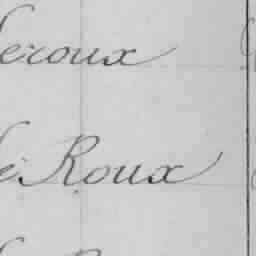 eroux
e Roux